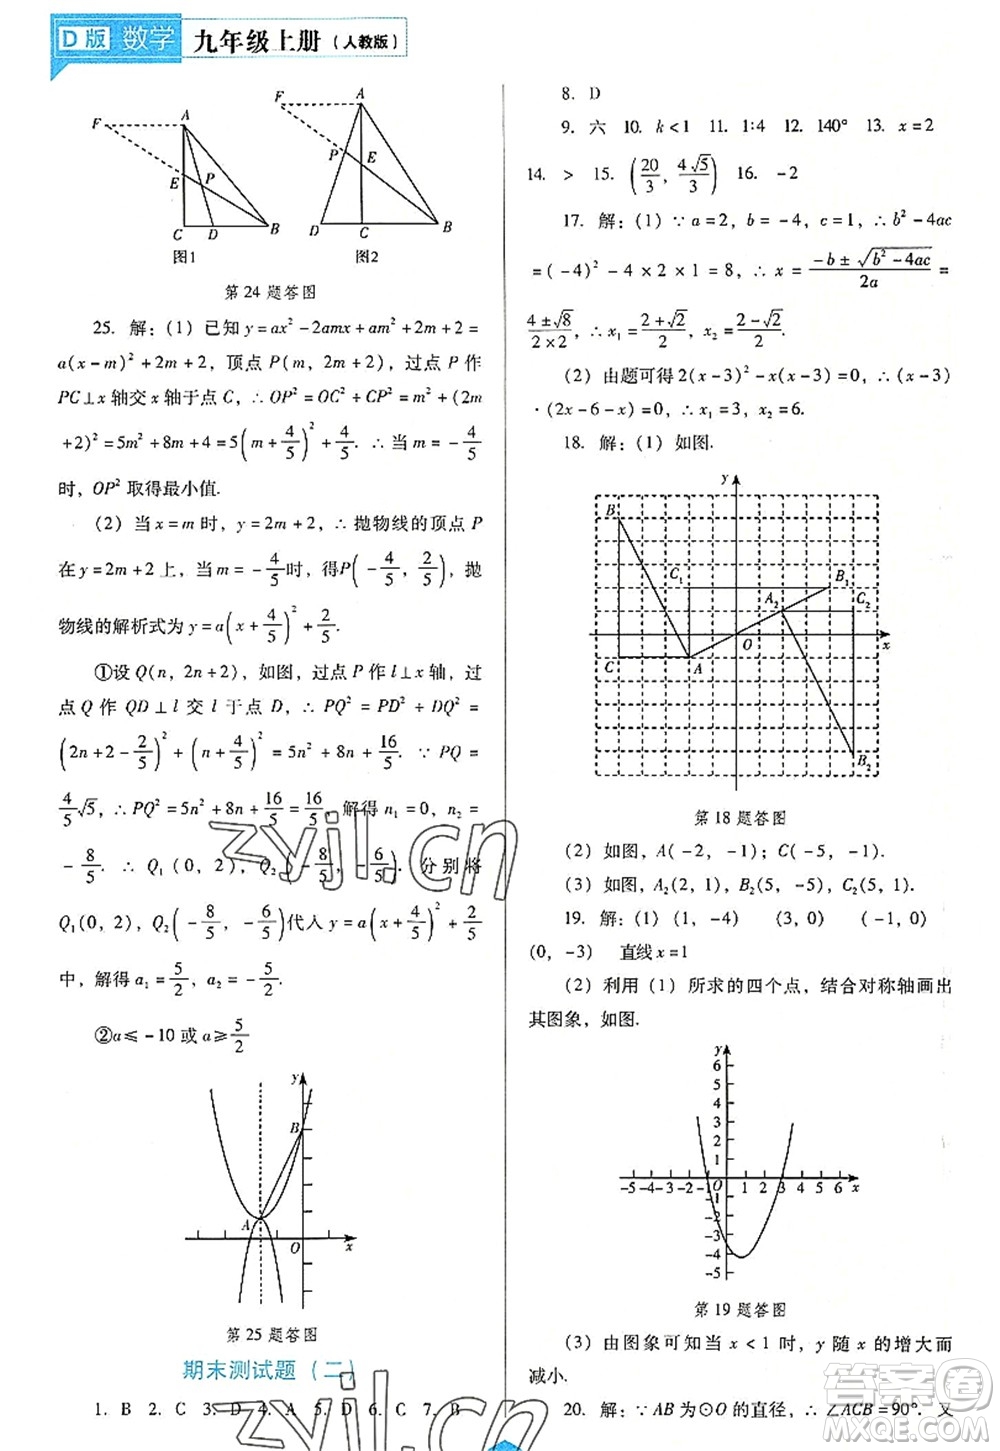 D版 数学 九年级上册（人教版）
F A E P C D B
图1
F A P E D C B
图2
第 24 题答图
25. 解：(1) 已知 y = ax² - 2amx + am² + 2m + 2 =
a(x - m)² + 2m + 2，顶点 P(m, 2m + 2)，过点 P 作
PC⊥x 轴交 x 轴于点 C，∴ OP² = OC² + CP² = m² + (2m
+2)² = 5m² + 8m + 4 = 5(m + 4/5)² + 4/5. ∴ 当 m = -4/5
时，OP² 取得最小值.
(2) 当 x = m 时，y = 2m + 2，∴ 抛物线的顶点 P
在 y = 2m + 2 上，当 m = -4/5 时，得 P(-4/5, 2/5)，抛
物线的解析式为 y = a(x + 4/5)² + 2/5.
①设 Q(n, 2n + 2)，如图，过点 P 作 l⊥x 轴，过
点 Q 作 QD⊥l 交 l 于点 D，∴ PQ² = PD² + DQ² =
(2n + 2 - 2/5)² + (n + 4/5)² = 5n² + 8n + 16/5. ∵ PQ =
4/5√5，∴ PQ² = 5n² + 8n + 16/5 = 16/5，解得 n₁ = 0，n₂ =
-8/5. ∴ Q₁(0, 2)，Q₂(-8/5, -6/5)，分别将
Q₁(0, 2)，Q₂(-8/5, -6/5)代人 y = a(x + 4/5)² + 2/5
中，解得 a₁ = 5/2，a₂ = -5/2.
②a ≤ -10 或 a ≥ 5/2
y B A O x
第 25 题答图
期末测试题（二）
1. B 2. C 3. D 4. A 5. D 6. C 7. B
8. D
9. 六 10. k < 1 11. 1:4 12. 140° 13. x = 2
14. > 15. (20/3, 4√5/3) 16. -2
17. 解：(1) ∵ a = 2，b = -4，c = 1，∴ b² - 4ac
= (-4)² - 4 × 2 × 1 = 8，∴ x = (-b ± √(b² - 4ac))/2a =
(4 ± √8)/(2 × 2)，∴ x₁ = (2 + √2)/2，x₂ = (2 - √2)/2.
(2) 由题可得 2(x - 3)² - x(x - 3) = 0，∴ (x - 3)
·(2x - 6 - x) = 0，∴ x₁ = 3，x₂ = 6.
18. 解：(1) 如图.
y B C₁ B₁ A₂ C₂ O x C A B₂
第 18 题答图
(2) 如图，A(-2, -1)；C(-5, -1).
(3) 如图，A₂(2, 1)，B₂(5, -5)，C₂(5, 1).
19. 解：(1) (1, -4) (3, 0) (-1, 0)
(0, -3) 直线 x = 1
(2) 利用（1）所求的四个点，结合对称轴画出
其图象，如图.
y
6
5
4
3
2
1
-5 -4 -3 -2 -1 O 1 2 3 4 5 6 x
-1
-2
-3
-4
-5
第 19 题答图
(3) 由图象可知当 x < 1 时，y 随 x 的增大而
减小.
20. 解：∵ AB 为⊙O 的直径，∴ ∠ACB = 90°. 又
zyjl.cn
zyjl.cn
答案圈
MXQE.COM